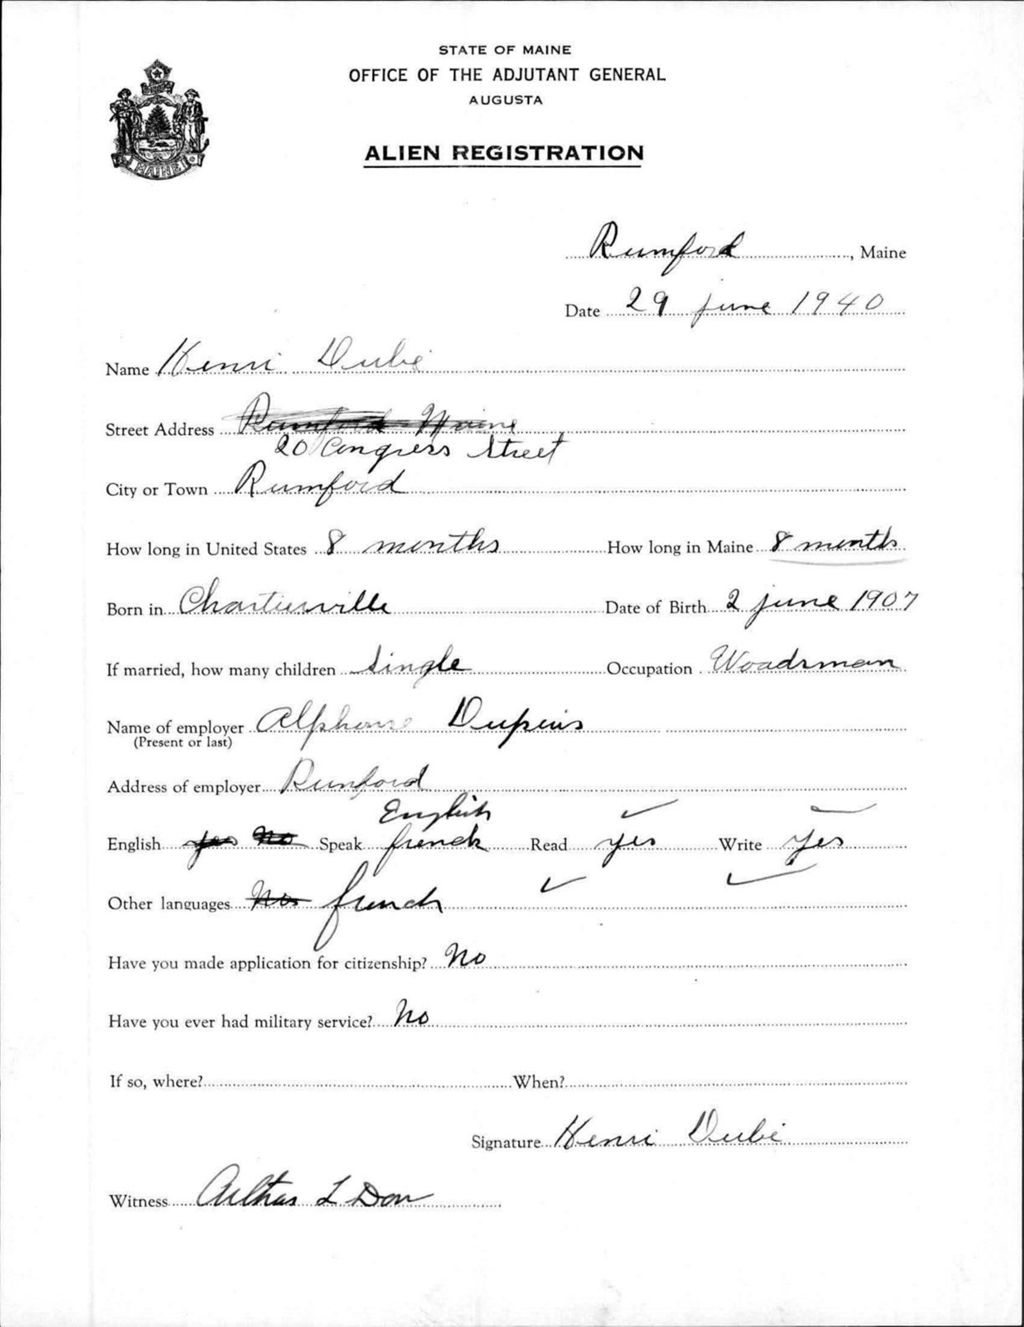 STATE OF MAINE
OFFICE OF THE ADJUTANT GENERAL
AUGUSTA
ALIEN REGISTRATION
MAINE
Rumford, Maine
Date 29 june 1940
Name Henri Dubé
Street Address Rumford Maine
20 Congress Street
City or Town Rumford
How long in United States 8 months How long in Maine 8 months
Born in Chartierville Date of Birth 2 june 1907
If married, how many children single Occupation Woodsman
Name of employer Alphonse Dupuis
(Present or last)
Address of employer Rumford
English
English yes No Speak french Read yes Write yes
Other languages No french
Have you made application for citizenship? No
Have you ever had military service? No
If so, where? When?
Signature Henri Dubé
Witness L